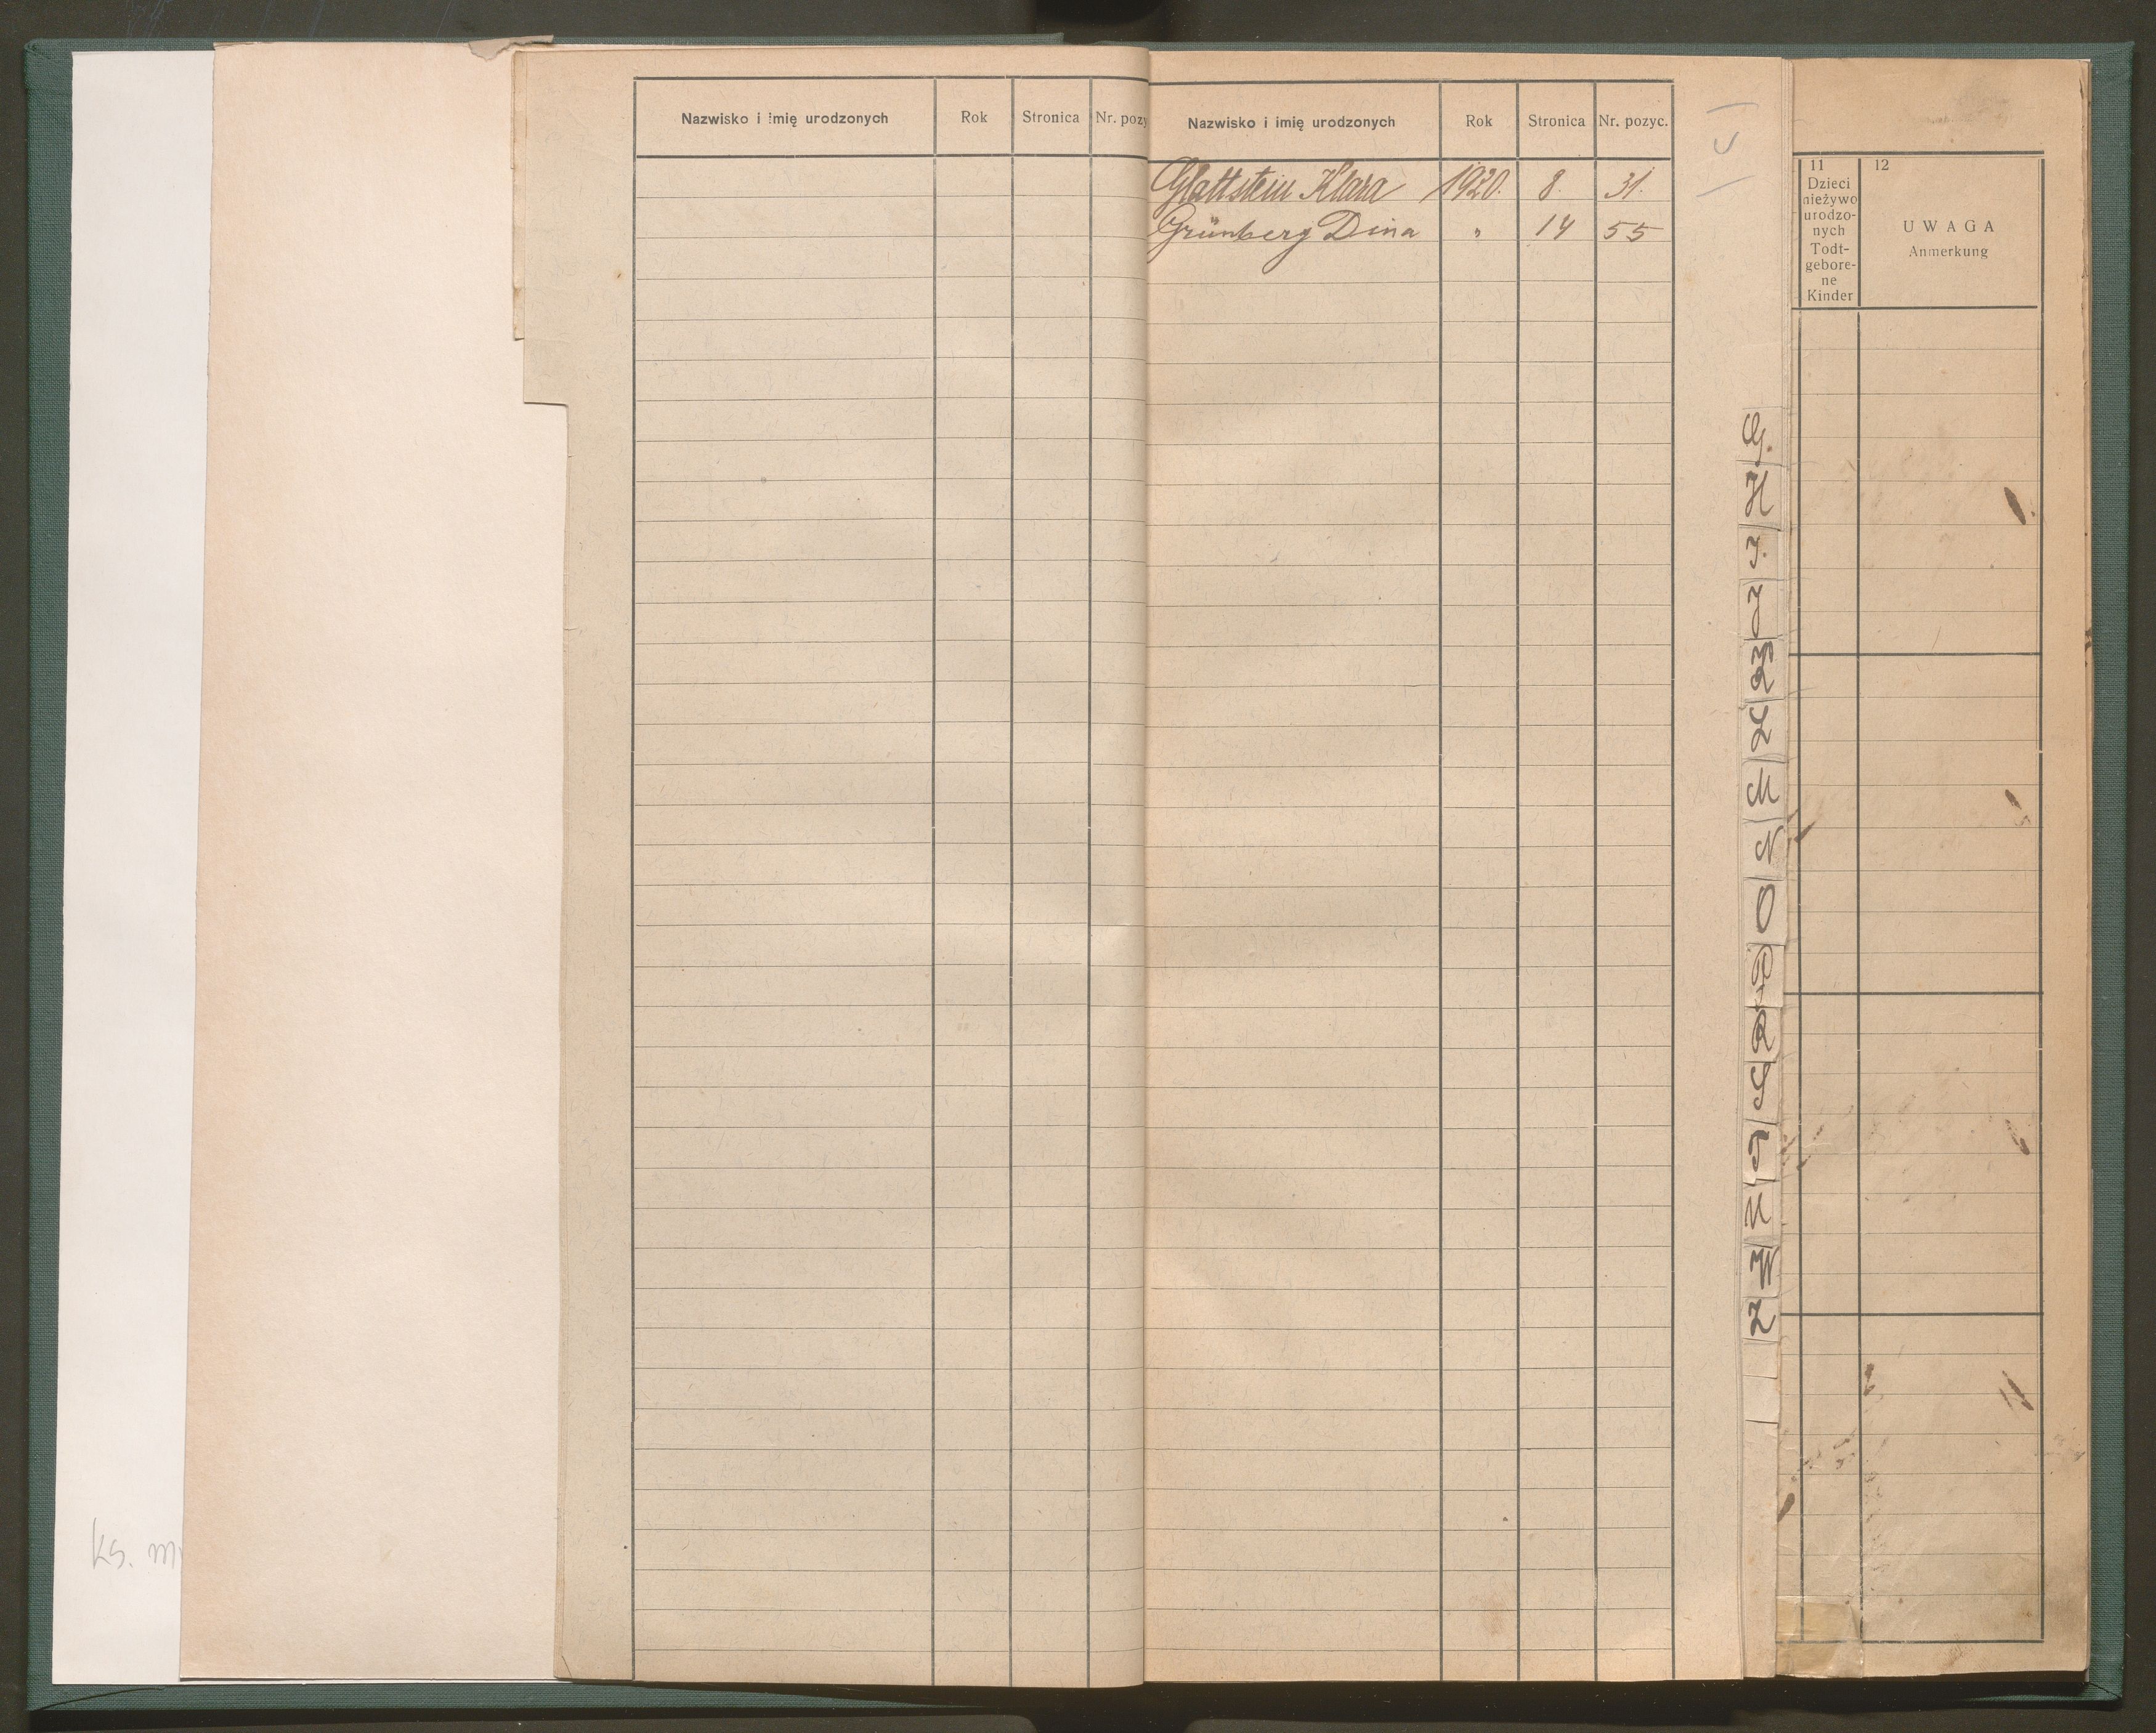 Nazwisko i imię urodzonych Rok Stronica Nr. pozy
Nazwisko i imię urodzonych Rok Stronica Nr. pozyc.
Glattstein Klara 1920. 8. 31.
Grünberg Dina " 14 55
11
Dzieci
nieżywo
urodzo-
nych
Todt-
gebore-
ne
Kinder
12
UWAGA
Anmerkung
G.
H
I.
J
K
L
M
N
O
P
R
S
T
U
W
Z
ks.